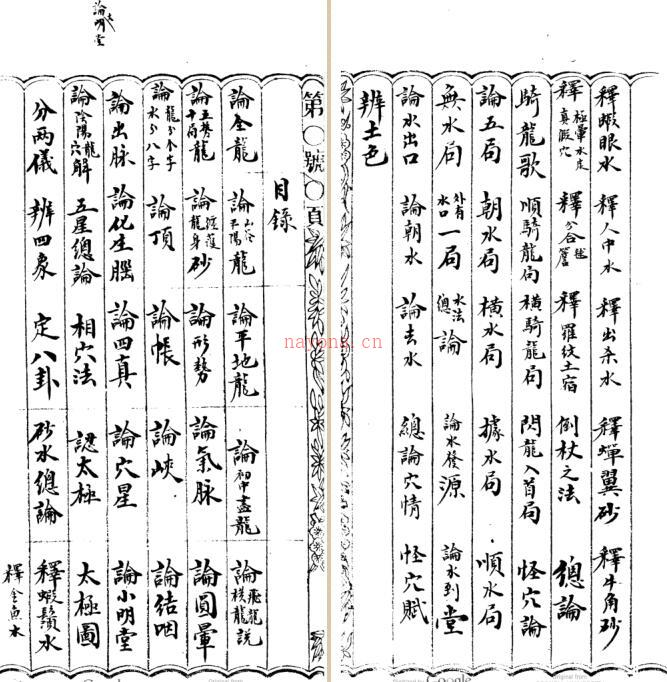 論大明堂
第○號○頁
目錄
論全龍 論平陽龍 論平地龍 論初中盡龍 論飛龍橫龍說
論五勢龍 論纏護龍身砂 論形勢 論氣脉 論圓暈
論龍分个字水分八字 論頂 論帳 論峽 論結咽
論出脉 論化生腦 論四真 論穴星 論小明堂
論陰陽龍穴解 五星總論 相穴法 認太極 太極圖
分兩儀 辨四象 定八卦 砂水總論 釋蝦鬚水
釋金魚水
釋蝦眼水 釋人中水 釋出杀水 釋蟬翼砂 釋牛角砂
釋極暈水底真假穴 釋分合毬簷 釋羅紋土宿 倒杖之法 總論
騎龍歌 順騎龍局 橫騎龍局 閃龍入首局 怪穴論
論五局 朝水局 橫水局 據水局 順水局
無水局 外有水口一局 水法總論 論水發源 論水到堂
論水出口 論朝水 論去水 總論穴情 怪穴賦
辨土色
nayona.cn
Google
Original from